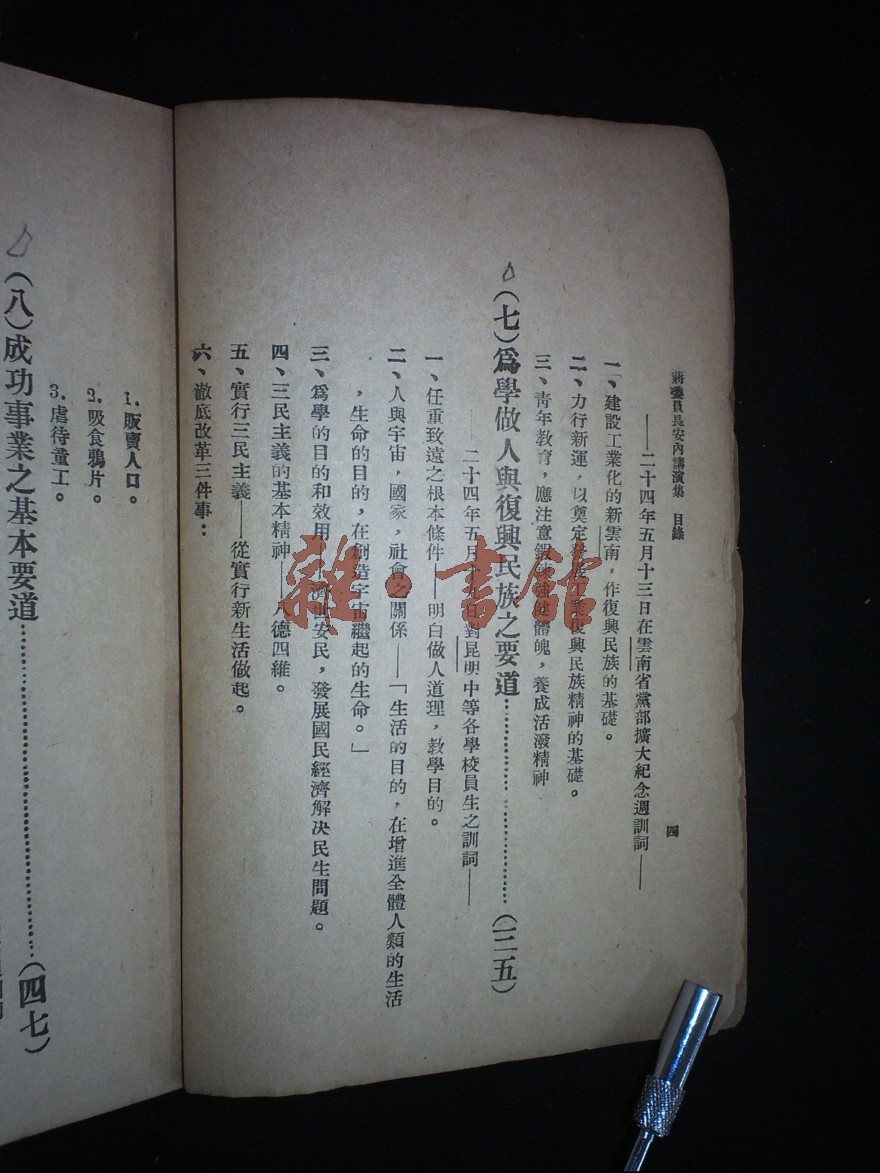 蔣委員長安內講演集　目錄
四
——二十四年五月十三日在雲南省黨部擴大紀念週訓詞——
一、建設工業化的新雲南，作復興民族的基礎。
二、力行新運，以奠定發展工業復興民族精神的基礎。
三、靑年教育，應注意鍛鍊強健體魄，養成活潑精神
（七）爲學做人與復興民族之要道…………………（三五）
——二十四年五月十九日對昆明中等各學校員生之訓詞——
一、任重致遠之根本條件——明白做人道理，教學目的。
二、人與宇宙，國家，社會之關係——「生活的目的，在增進全體人類的生活
，生命的目的，在創造宇宙繼起的生命。」
三、爲學的目的和效用——濟世安民，發展國民經濟解決民生問題。
四、三民主義的基本精神——八德四維。
五、實行三民主義——從實行新生活做起。
六、澈底改革三件事：
1.販賣人口。
2.吸食鴉片。
3.虐待童工。
（八）成功事業之基本要道…………………（四七）
雜·書館